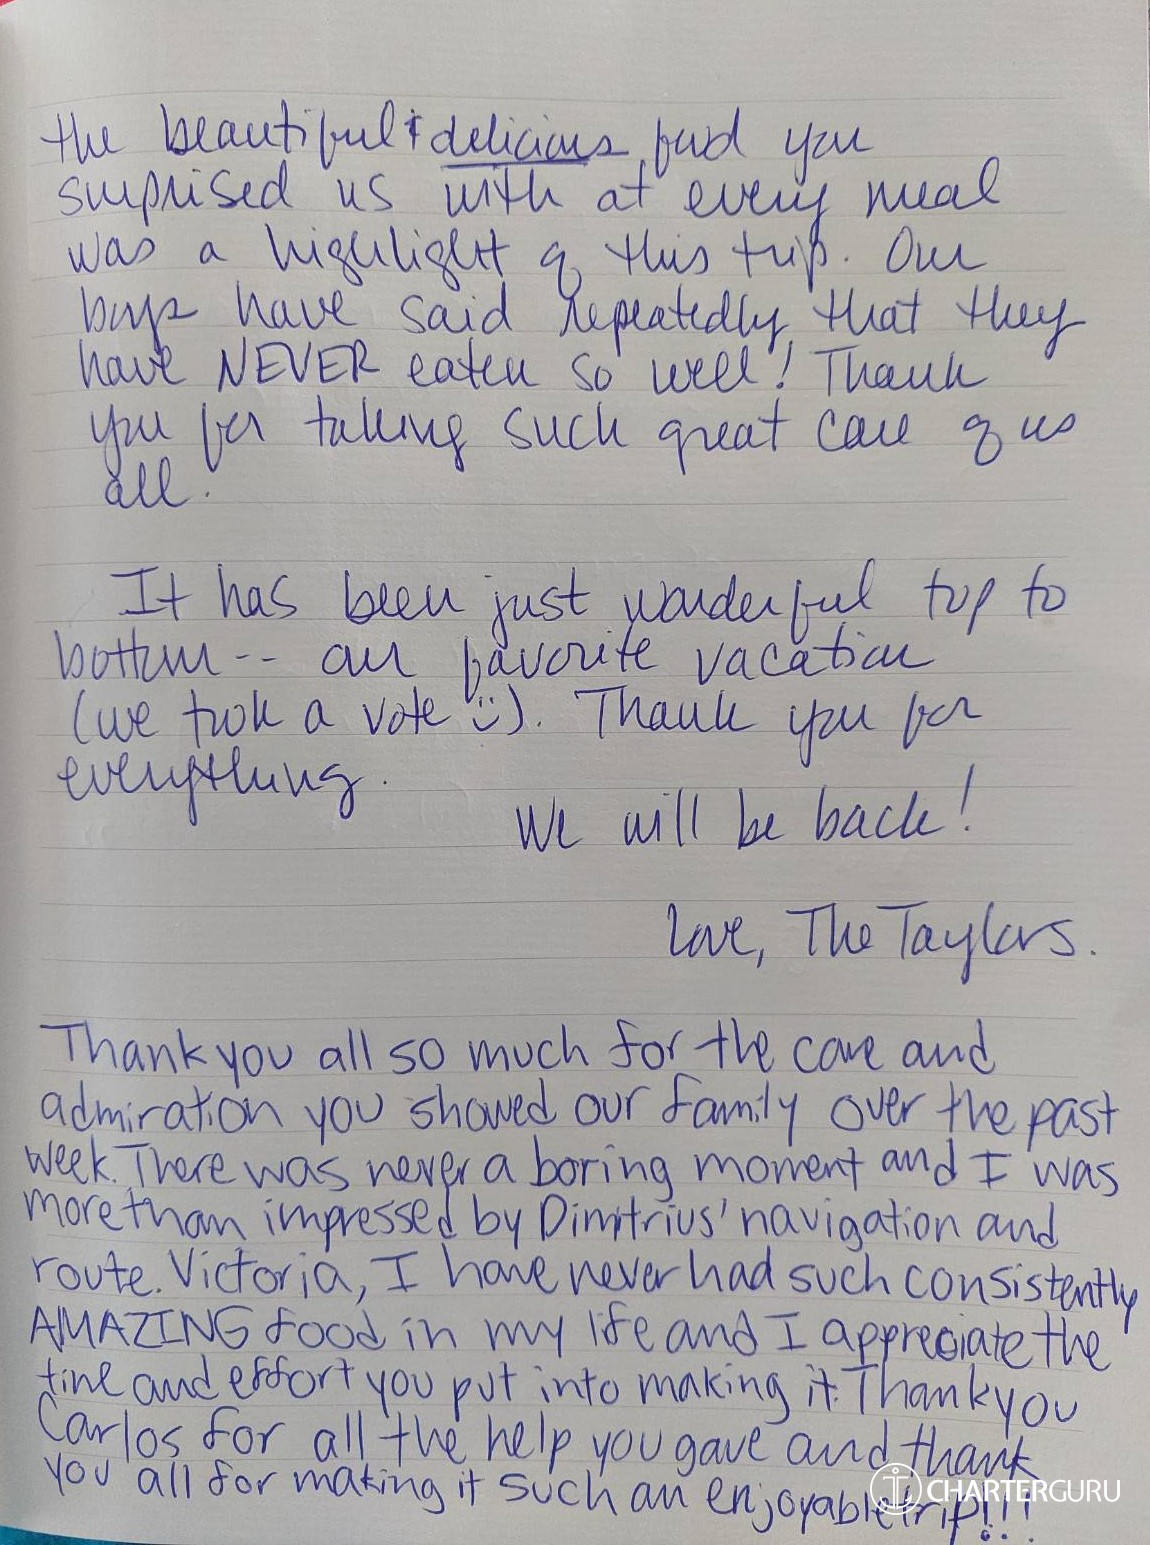 the beautiful & delicious food you
surprised us with at every meal
was a highlight of this trip. Our
boys have said repeatedly that they
have NEVER eaten so well! Thank
you for taking such great care of us
all.
It has been just wonderful top to
bottom -- our favorite vacation
(we took a vote :)). Thank you for
everything.
We will be back!
Love, The Taylors.
Thank you all so much for the care and
admiration you showed our family over the past
week. There was never a boring moment and I was
more than impressed by Dimitrius' navigation and
route. Victoria, I have never had such consistently
AMAZING food in my life and I appreciate the
time and effort you put into making it. Thank you
Carlos for all the help you gave and thank
you all for making it such an enjoyable trip!!!
CHARTERGURU